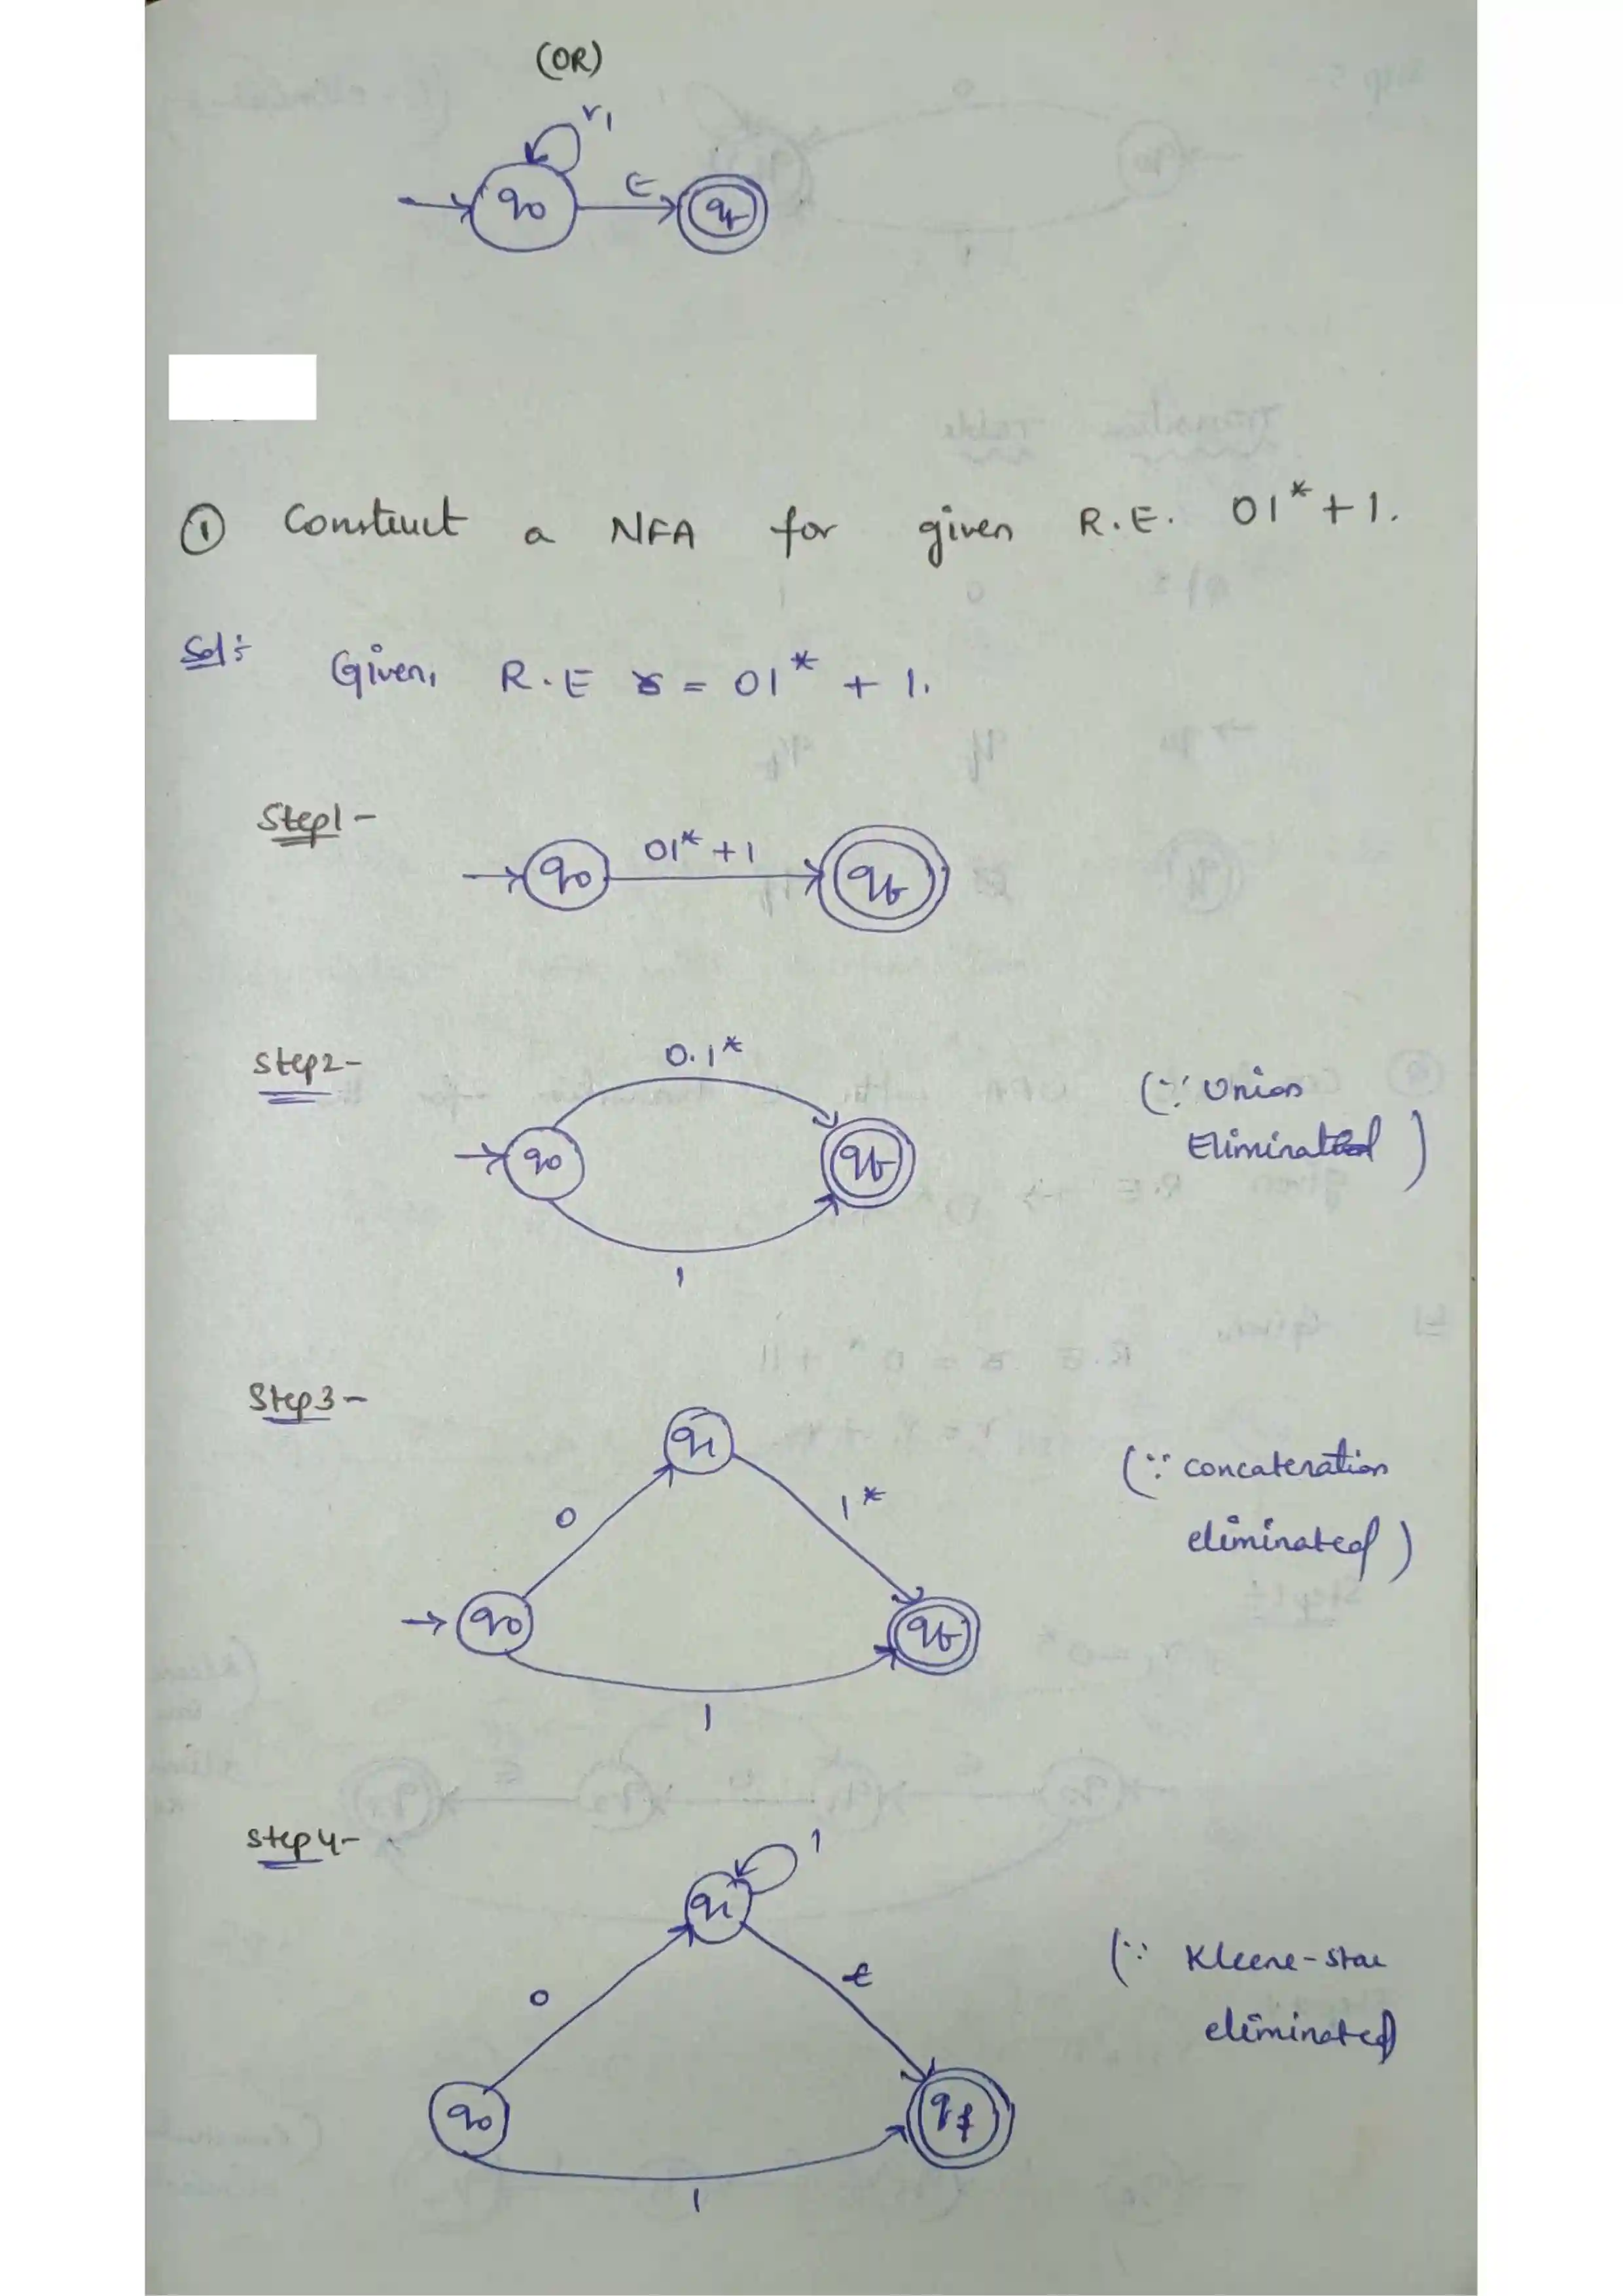 (OR)
r1
q0 ε qf
① Construct a NFA for given R.E. 01* + 1.
Sol:- Given, R.E r = 01* + 1.
Step1 -
q0 01* + 1 qf
Step2 -
0.1*
q0 qf
1
(∵ Union
Eliminated)
Step3 -
q1
0 1*
q0 qf
1
(∵ concatenation
eliminated)
Step4 -
1
q1
0 ε
q0 qf
1
(∵ Kleene-star
eliminated)